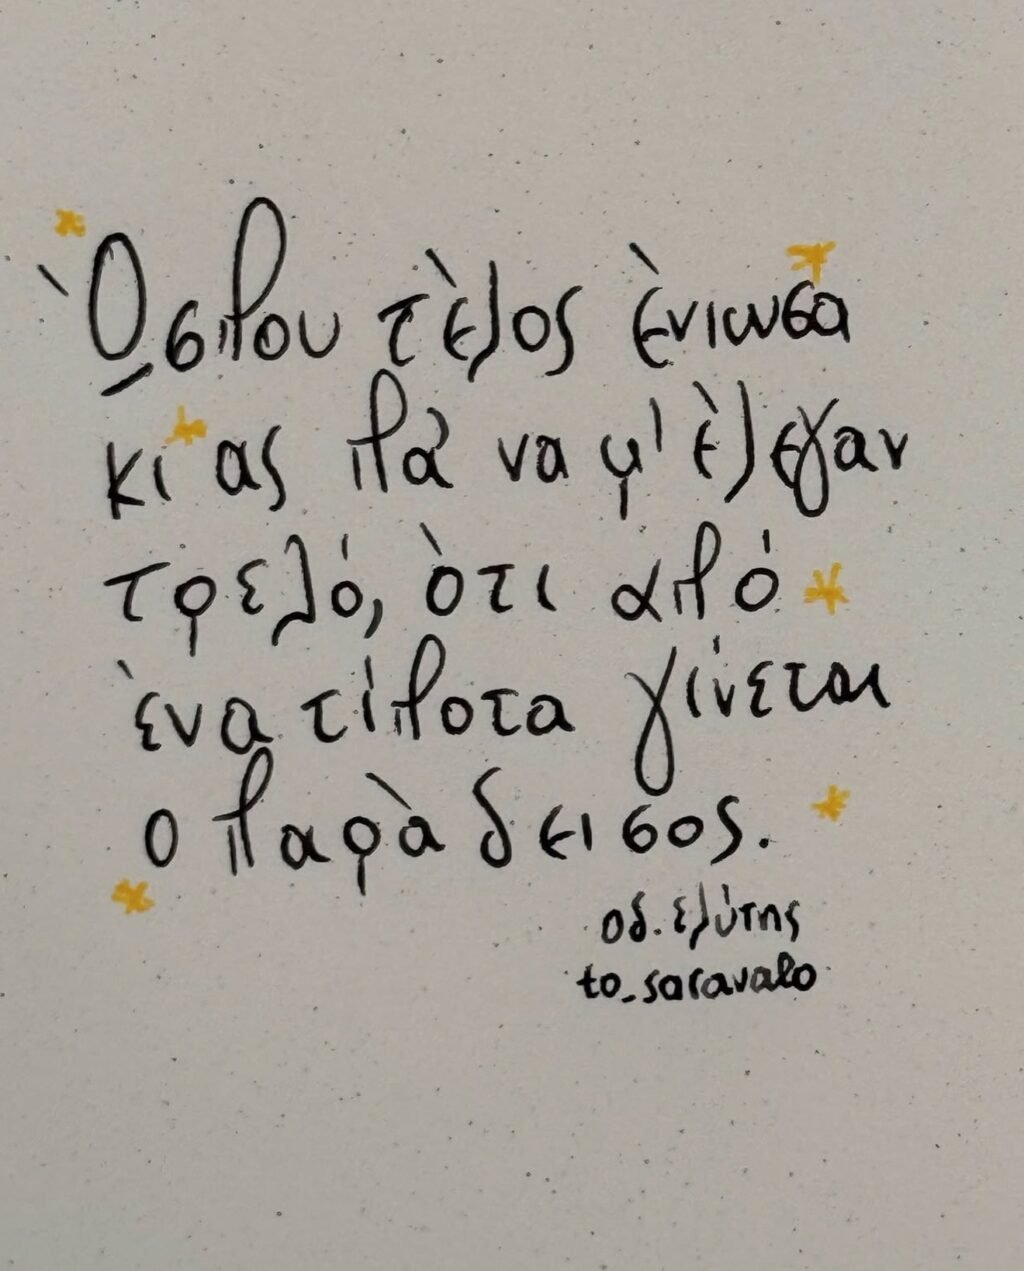 Ώσπου τέλος ένιωσα
κι ας πα να μ' έλεγαν
τρελό, ότι από
ένα τίποτα γίνεται
ο παράδεισος.
οδ. ελύτης
to_saravalo